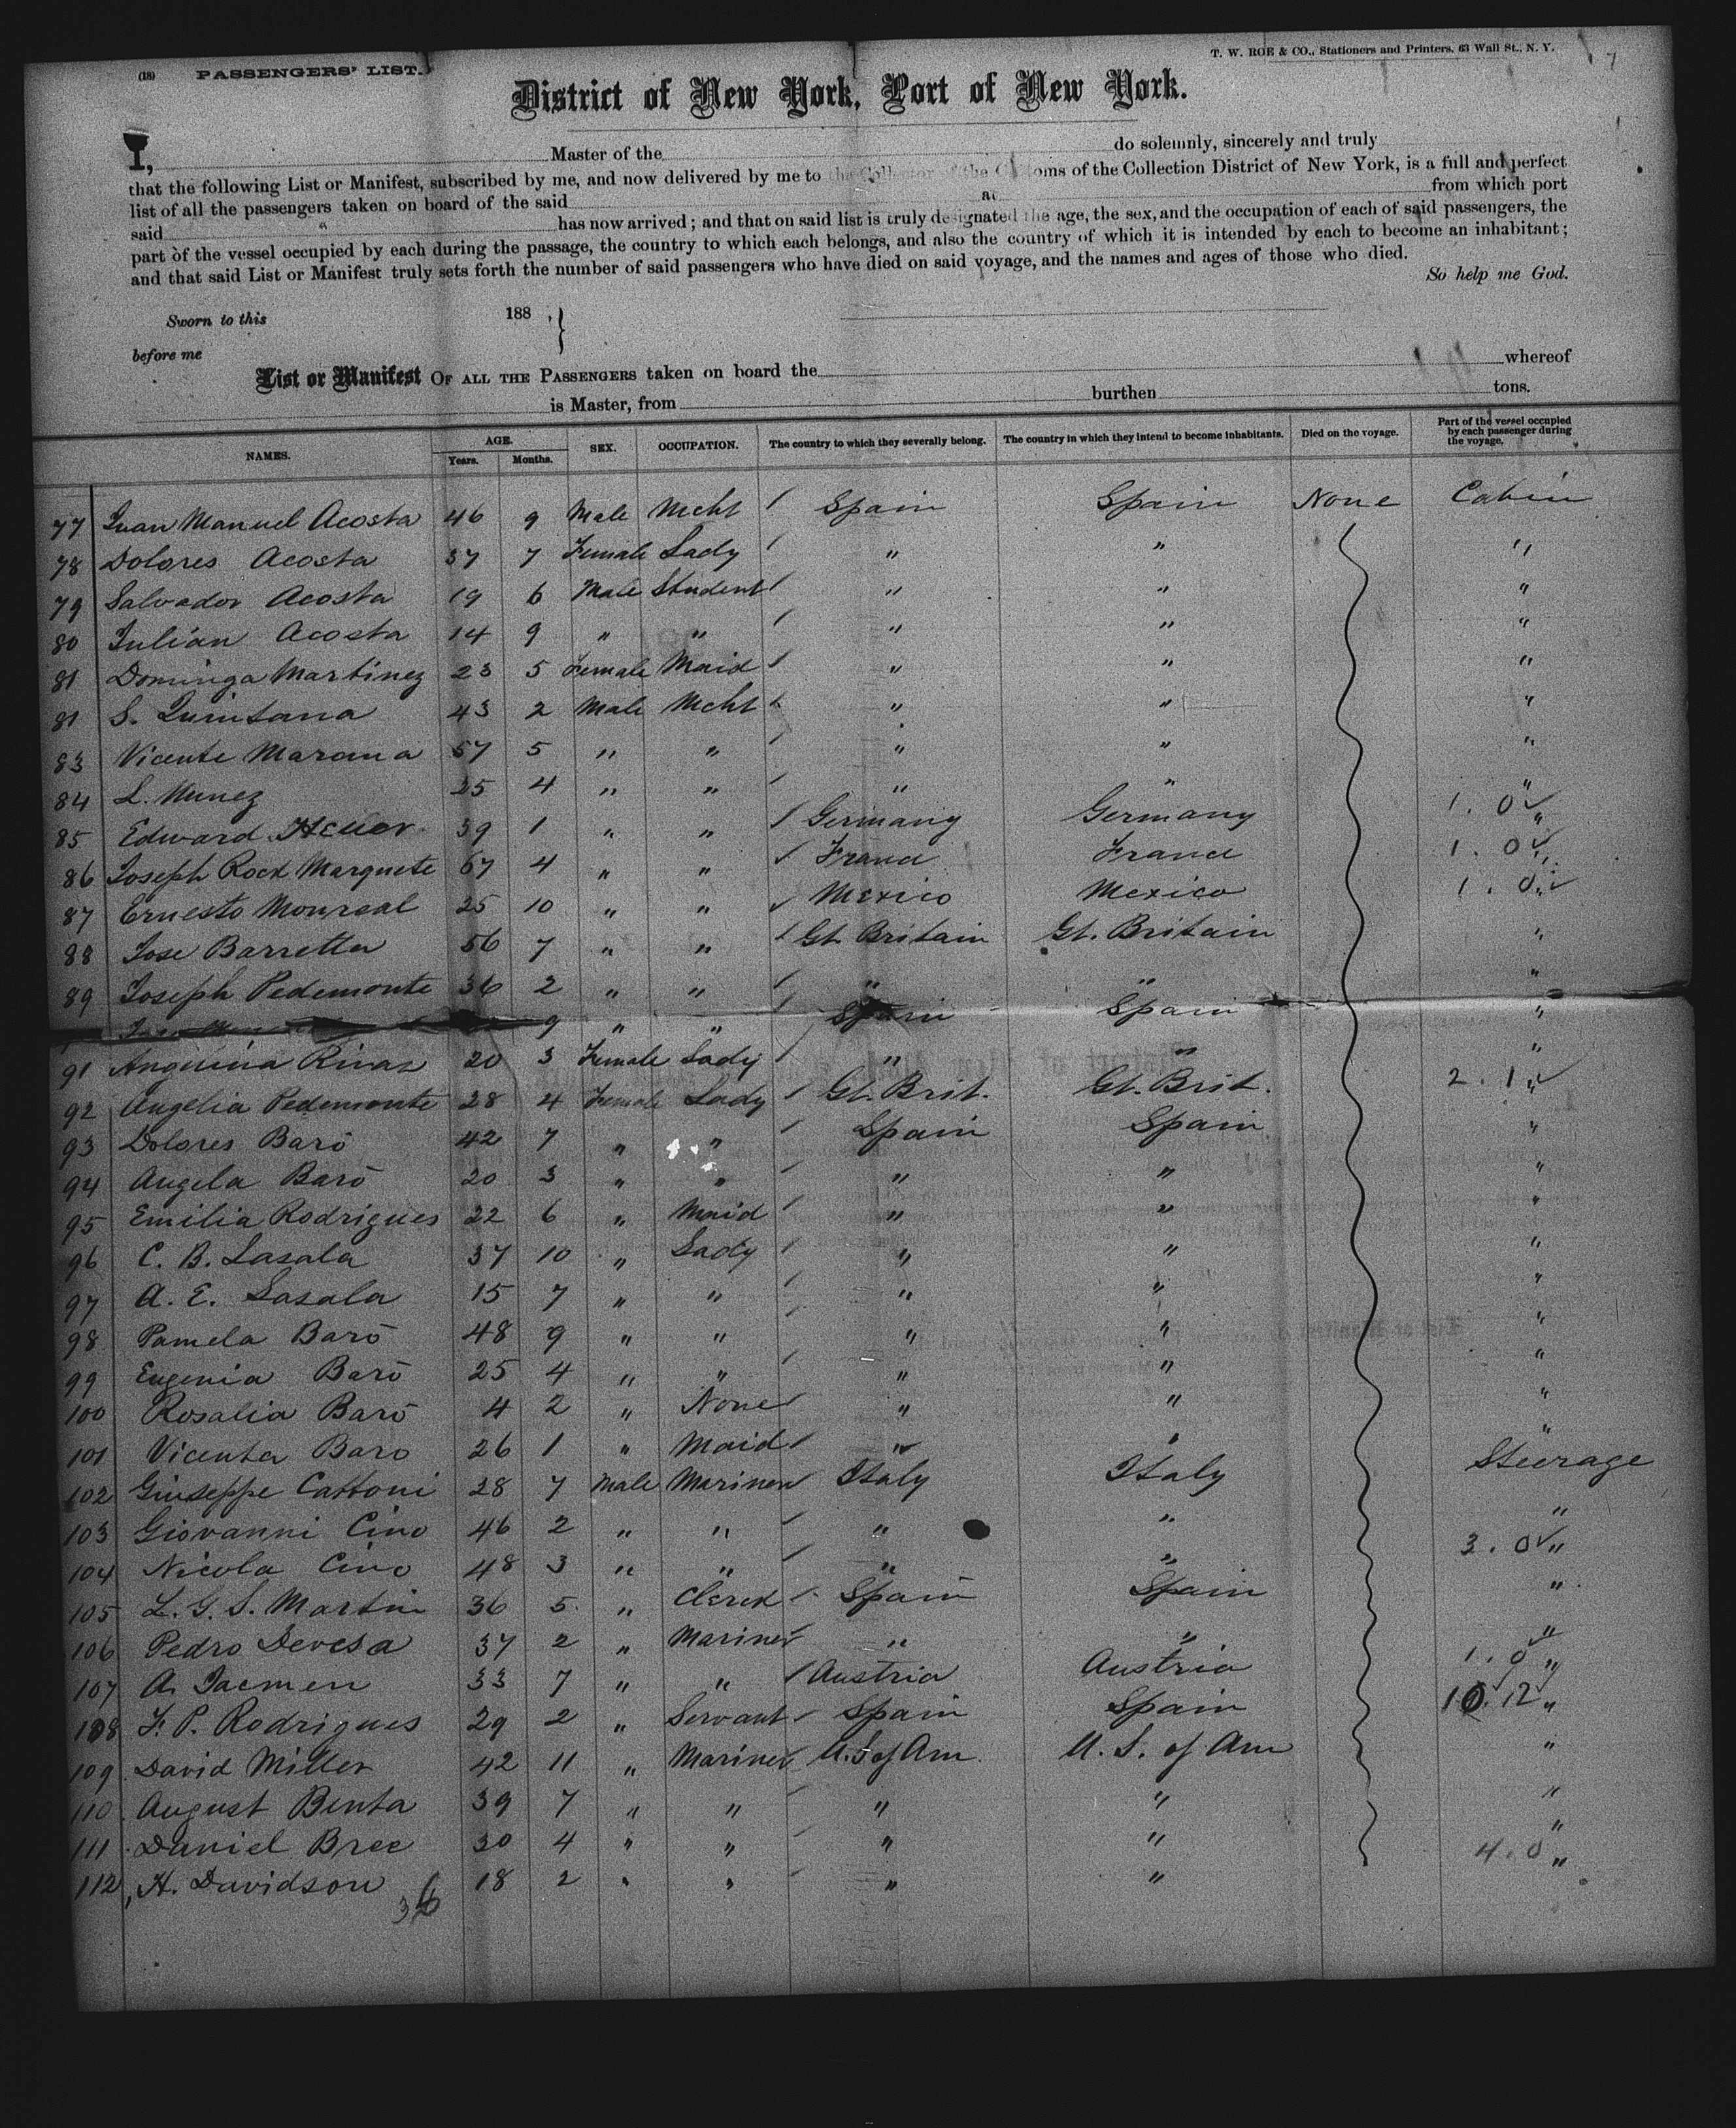 (18) PASSENGERS' LIST.
T. W. ROE & CO., Stationers and Printers, 63 Wall St., N. Y.
7
District of New York, Port of New York.
I, Master of the do solemnly, sincerely and truly
that the following List or Manifest, subscribed by me, and now delivered by me to the Collector of the Customs of the Collection District of New York, is a full and perfect
list of all the passengers taken on board of the said at from which port
said has now arrived; and that on said list is truly designated the age, the sex, and the occupation of each of said passengers, the
part of the vessel occupied by each during the passage, the country to which each belongs, and also the country of which it is intended by each to become an inhabitant;
and that said List or Manifest truly sets forth the number of said passengers who have died on said voyage, and the names and ages of those who died.
So help me God.
Sworn to this 188 , }
before me
List or Manifest OF ALL THE PASSENGERS taken on board the whereof
is Master, from burthen tons.
NAMES. AGE. Years. Months. SEX. OCCUPATION. The country to which they severally belong. The country in which they intend to become inhabitants. Died on the voyage. Part of the vessel occupied by each passenger during the voyage.
77 Juan Manuel Acosta 46 9 Male Mcht / Spain Spain None Cabin
78 Dolores Acosta 37 7 Female Lady / " " "
79 Salvador Acosta 19 6 Male Student / " " "
80 Julian Acosta 14 9 " " / " " "
81 Dominga Martinez 23 5 Female Maid / " " "
81 S. Quintana 43 2 Male Mcht / " " "
83 Vicente Marana 57 5 " " / " " "
84 L. Nunez 25 4 " " / " " "
85 Edward Heuer 39 1 " " / Germany Germany 1. 0 ✓ "
86 Joseph Rock Marquete 67 4 " " ✓ France France 1. 0 ✓ "
87 Ernesto Monreal 25 10 " " ✓ Mexico Mexico 1. 0 ✓ "
88 Jose Barretta 56 7 " " / Gt. Britain Gt. Britain "
89 Joseph Pedemonte 36 2 " " / " " "
9 " " / Spain Spain "
91 Angelina Rivas 20 3 Female Lady / " " "
92 Angelia Pedemonte 28 4 Female Lady / Gt. Brit. Gt. Brit. 2. 1 ✓ "
93 Dolores Baró 42 7 " " / Spain Spain "
94 Angela Baró 20 3 " " / " " "
95 Emilia Rodrigues 22 6 " Maid / " " "
96 C. B. Lasala 37 10 " Lady / " " "
97 A. E. Lasala 15 7 " " / " " "
98 Pamela Baró 48 9 " " / " " "
99 Eugenia Baró 25 4 " " / " " "
100 Rosalia Baró 4 2 " None / " " "
101 Vicenta Baro 26 1 " Maid / " " "
102 Giuseppe Cattoni 28 7 Male Mariner / Italy Italy Steerage
103 Giovanni Cino 46 2 " " / " " "
104 Nicola Cino 48 3 " " / " " 3. 0 ✓ "
105 L. G. S. Martin 36 5 " Clerck / Spain Spain "
106 Pedro Devesa 37 2 " Mariner / " " "
107 A. Jacmen 33 7 " " / Austria Austria 1. 0 ✓ "
108 F. P. Rodrigues 29 2 " Servant / Spain Spain 10. 12 ✓ "
109 David Miller 42 11 " Mariner / U. S. of Am. U. S. of Am "
110 August Benta 39 7 " " / " " "
111 Daniel Bree 30 4 " " / " " "
112 H. Davidson 18 2 " " / " " 4. 0 "
36